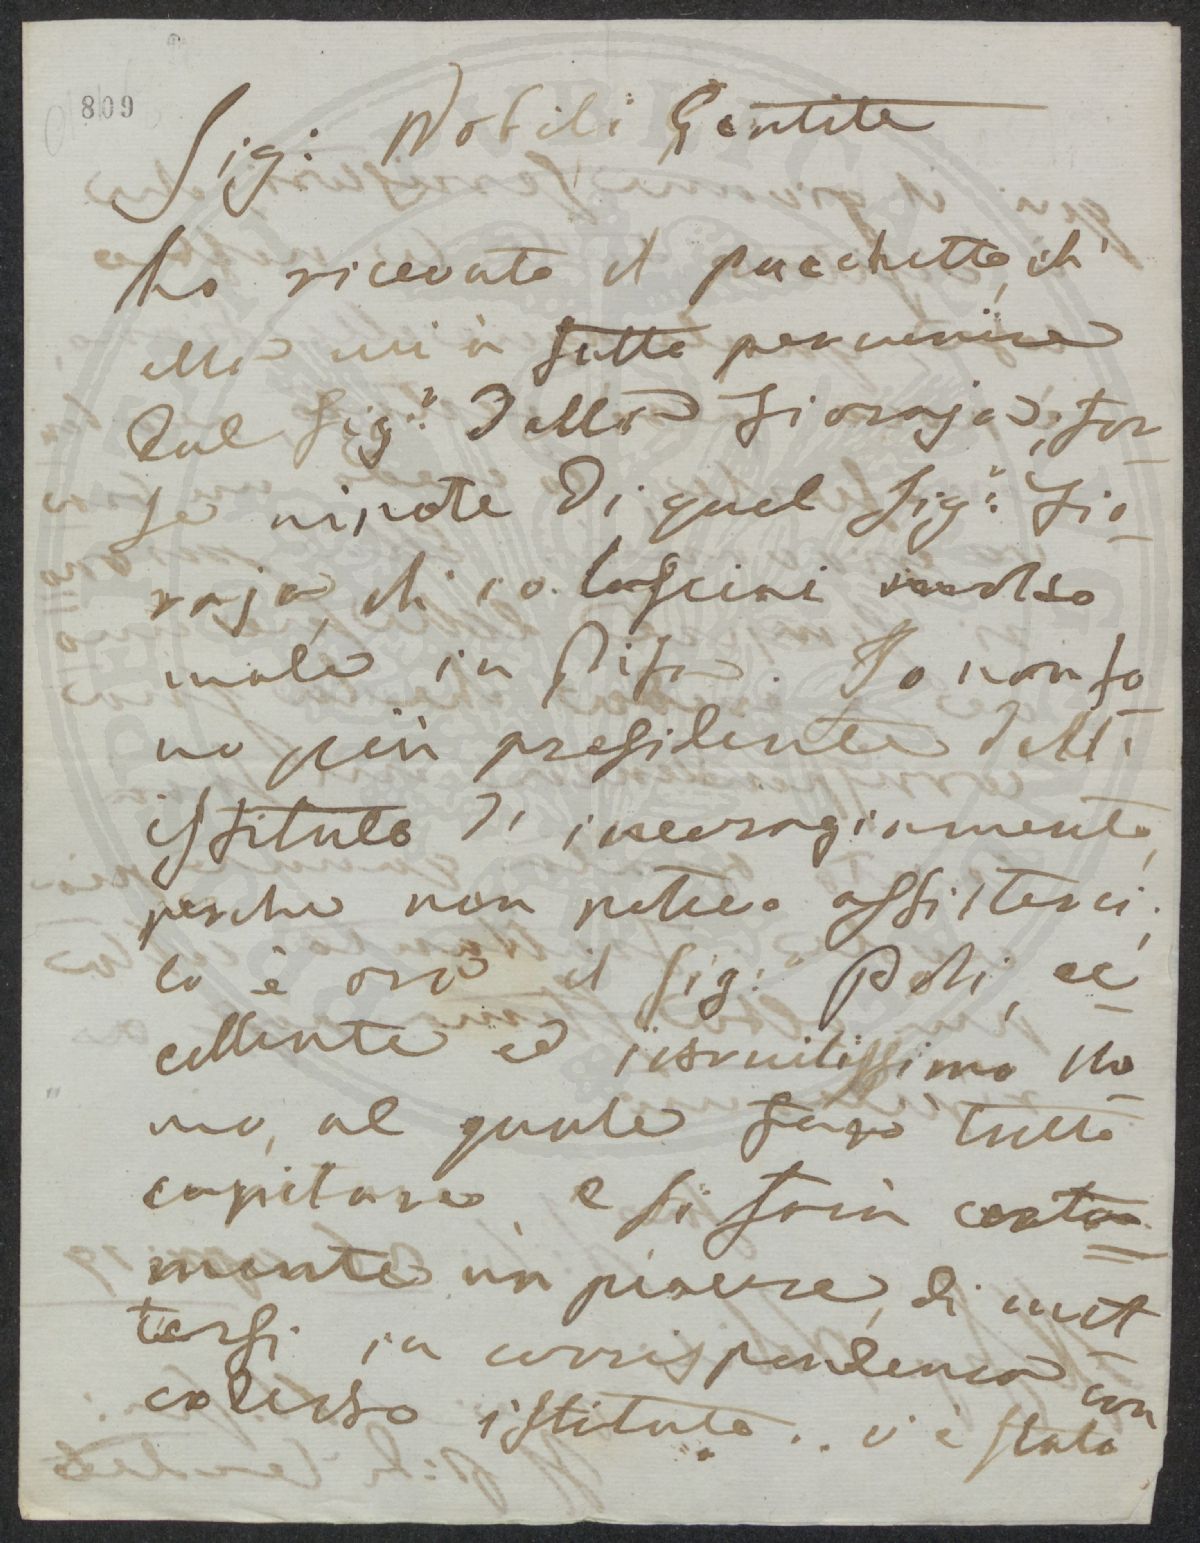 809
Sig: Nobili Gentile
ho ricevuto il pacchetto, ch'
ella mi à fatto pervenire
dal Sig.r della Fioraja, for
se nipote di quel Sig.r Fio
raja, ch'io lasciai
male in Pisa. Io non so
no più presidente dell'
istituto di incoragiamento,
perche non poteo assisterci.
lo è ora il Sig: Poli, ec
cellente ed istruitissimo uo
mo, al quale farò tutto
capitare, e si farà certa
mente un piacere, di met
tersi in corrispondenza con
codesto istituto. . v'è stato